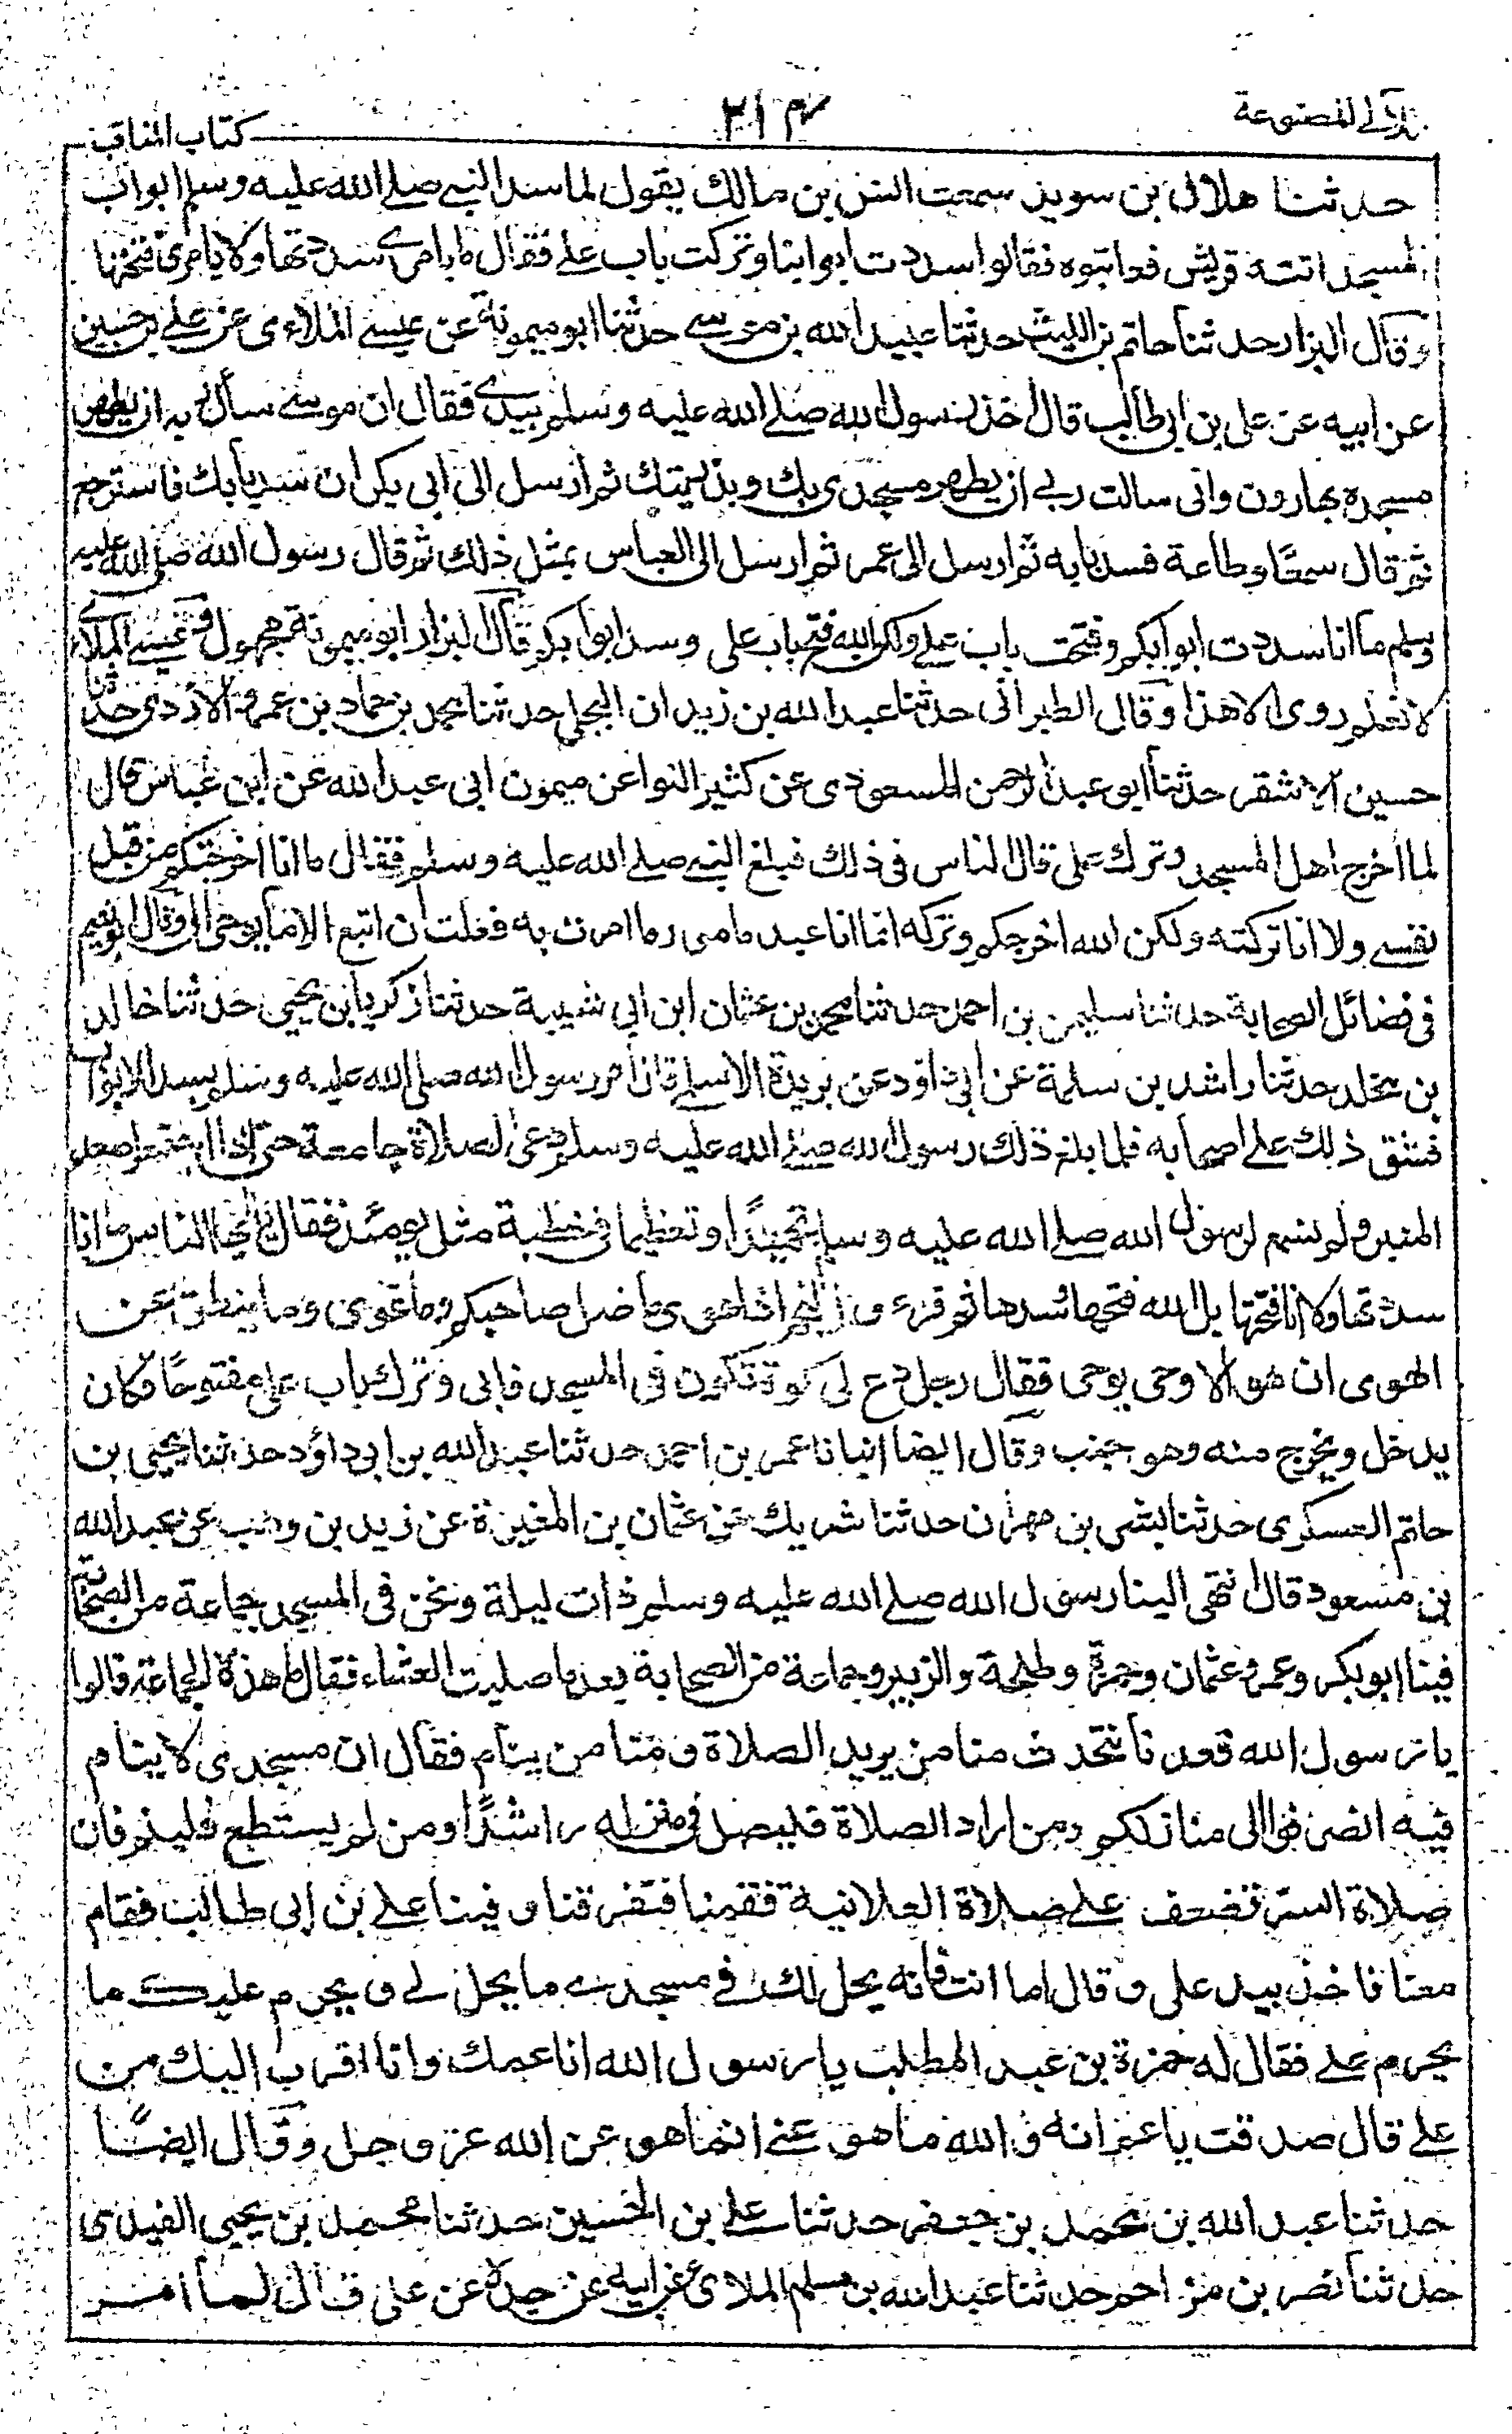 اللآلي المصنوعة
٢١٣
كتاب المناقب
حدثنا هلال بن سويد سمعت انس بن مالك يقول لما سد النبي صلے الله عليه وسلم ابواب
المسجد اتته قريش فعاتبوه فقالوا سددت ابوابنا وتركت باب علے فقال ما بامري سددتها ولا بامري فتحتها
وقال البزار حدثنا حاتم بن الليث حدثنا عبيد الله بن موسے حدثنا ابو ميمونة عن عيسے الملاءى عن علے بن حسين
عن ابيه عن على بن ابى طالب قال اخذ رسول الله صلے الله عليه وسلم بيدي فقال ان موسے سأل ربه ان يطهر
مسجده بهارون وانى سالت ربے ان يطهر مسجدى بك وبذريتك ثم ارسل الى ابى بكر ان سد بابك فاسترجع
ثم قال سمعًا وطاعة فسد بابه ثم ارسل الى عمر ثم ارسل الى العباس بمثل ذلك ثم قال رسول الله صلى الله عليه
وسلم ما انا سددت ابوابكم وفتحت باب علے ولكن الله فتح باب على وسد ابوابكم قال البزار ابو ميمونة مجهول وعيسے الملاءي
لا نعلم روى الا هذا وقال الطبرانى حدثنا عبد الله بن زيدان البجلى حدثنا محمد بن حماد بن عمرو الازدى حدثنا
حسين الاشقر حدثنا ابو عبد الرحمن المسعودى عن كثير النوا عن ميمون ابى عبد الله عن ابن عباس قال
لما اخرج اهل المسجد وترك على قال الناس فى ذلك فبلغ النبے صلے الله عليه وسلم فقال ما انا اخرجتكم من قبل
نفسے ولا انا تركته ولكن الله اخرجكم وتركه انما انا عبد مامور ما امرت به فعلت ان اتبع الا ما يوحى الى وقال ابو نعيم
فى فضائل الصحابة حدثنا سليمن بن احمد حدثنا محمد بن عثمان ابن ابى شيبة حدثنا زكريا بن يحيى حدثنا خالد
بن مخلد حدثنا راشد بن سلمة عن ابى داود عن بريدة الاسلے قال امر رسول الله صلى الله عليه وسلم بسد الابواب
فشق ذلك على اصحابه فلما بلغ ذلك رسول الله صلے الله عليه وسلم دعى الصلاة جامعة حتى اذا اجتمعوا صعد
المنبر ولم نسمع لرسول الله صلے الله عليه وسلم تحميدًا وتعظيما فى خطبة مثل يومئذ فقال يا ايها الناس ما انا
سددتها ولا انا فتحتها بل الله فتحها وسدها ثم قرء والنجم اذا هوى ما ضل صاحبكم وما غوى وما ينطق عن
الهوى ان هو الا وحى يوحى فقال رجل دع لى كوة تكون فى المسجد فابى وترك باب على مفتوحًا فكان
يدخل ويخرج منه وهو جنب وقال ايضا انبانا عمر بن احمد حدثنا عبد الله بن ابى داؤد حدثنا يحيى بن
حاتم العسكرى حدثنا بشر بن مهران حدثنا شريك عن عثمان بن المغيرة عن زيد بن وهب عن عبد الله
بن مسعود قال انتهى الينا رسول الله صلے الله عليه وسلم ذات ليلة ونحن فى المسجد جماعة من الصحابة
فينا ابو بكر وعمر وعثمان وحمزة وطلحة والزبير وجماعة من الصحابة بعد ما صليت العشاء فقال ما هذه الجماعة قالوا
يا رسول الله قعدنا نتحدث منا من يريد الصلاة ومنا من ينام فقال ان مسجدى لا ينام
فيه انصرفوا الى منازلكم ومن اراد الصلاة فليصل فى منزله راشدًا ومن لم يستطع فلينم فان
صلاة السر تضعف علے صلاة العلانية فقمنا فتفرقنا وفينا علے بن ابى طالب فقام
معنا فاخذ بيد على وقال اما انت فانه يحل لك فے مسجدے ما يحل لے ويحرم عليك ما
يحرم علے فقال له حمزة بن عبد المطلب يا رسول الله انا عمك وانا اقرب اليك من
علے قال صدقت يا عم انه والله ما هو عنے انما هو عن الله عز وجل وقال ايضًا
حدثنا عبد الله بن محمد بن جعفر حدثنا علے بن الحسين حدثنا محمد بن يحيى الفيدى
حدثنا نصر بن مزاحم حدثنا عبد الله بن مسلم الملائى عن ابيه عن جده عن على قال لما امر